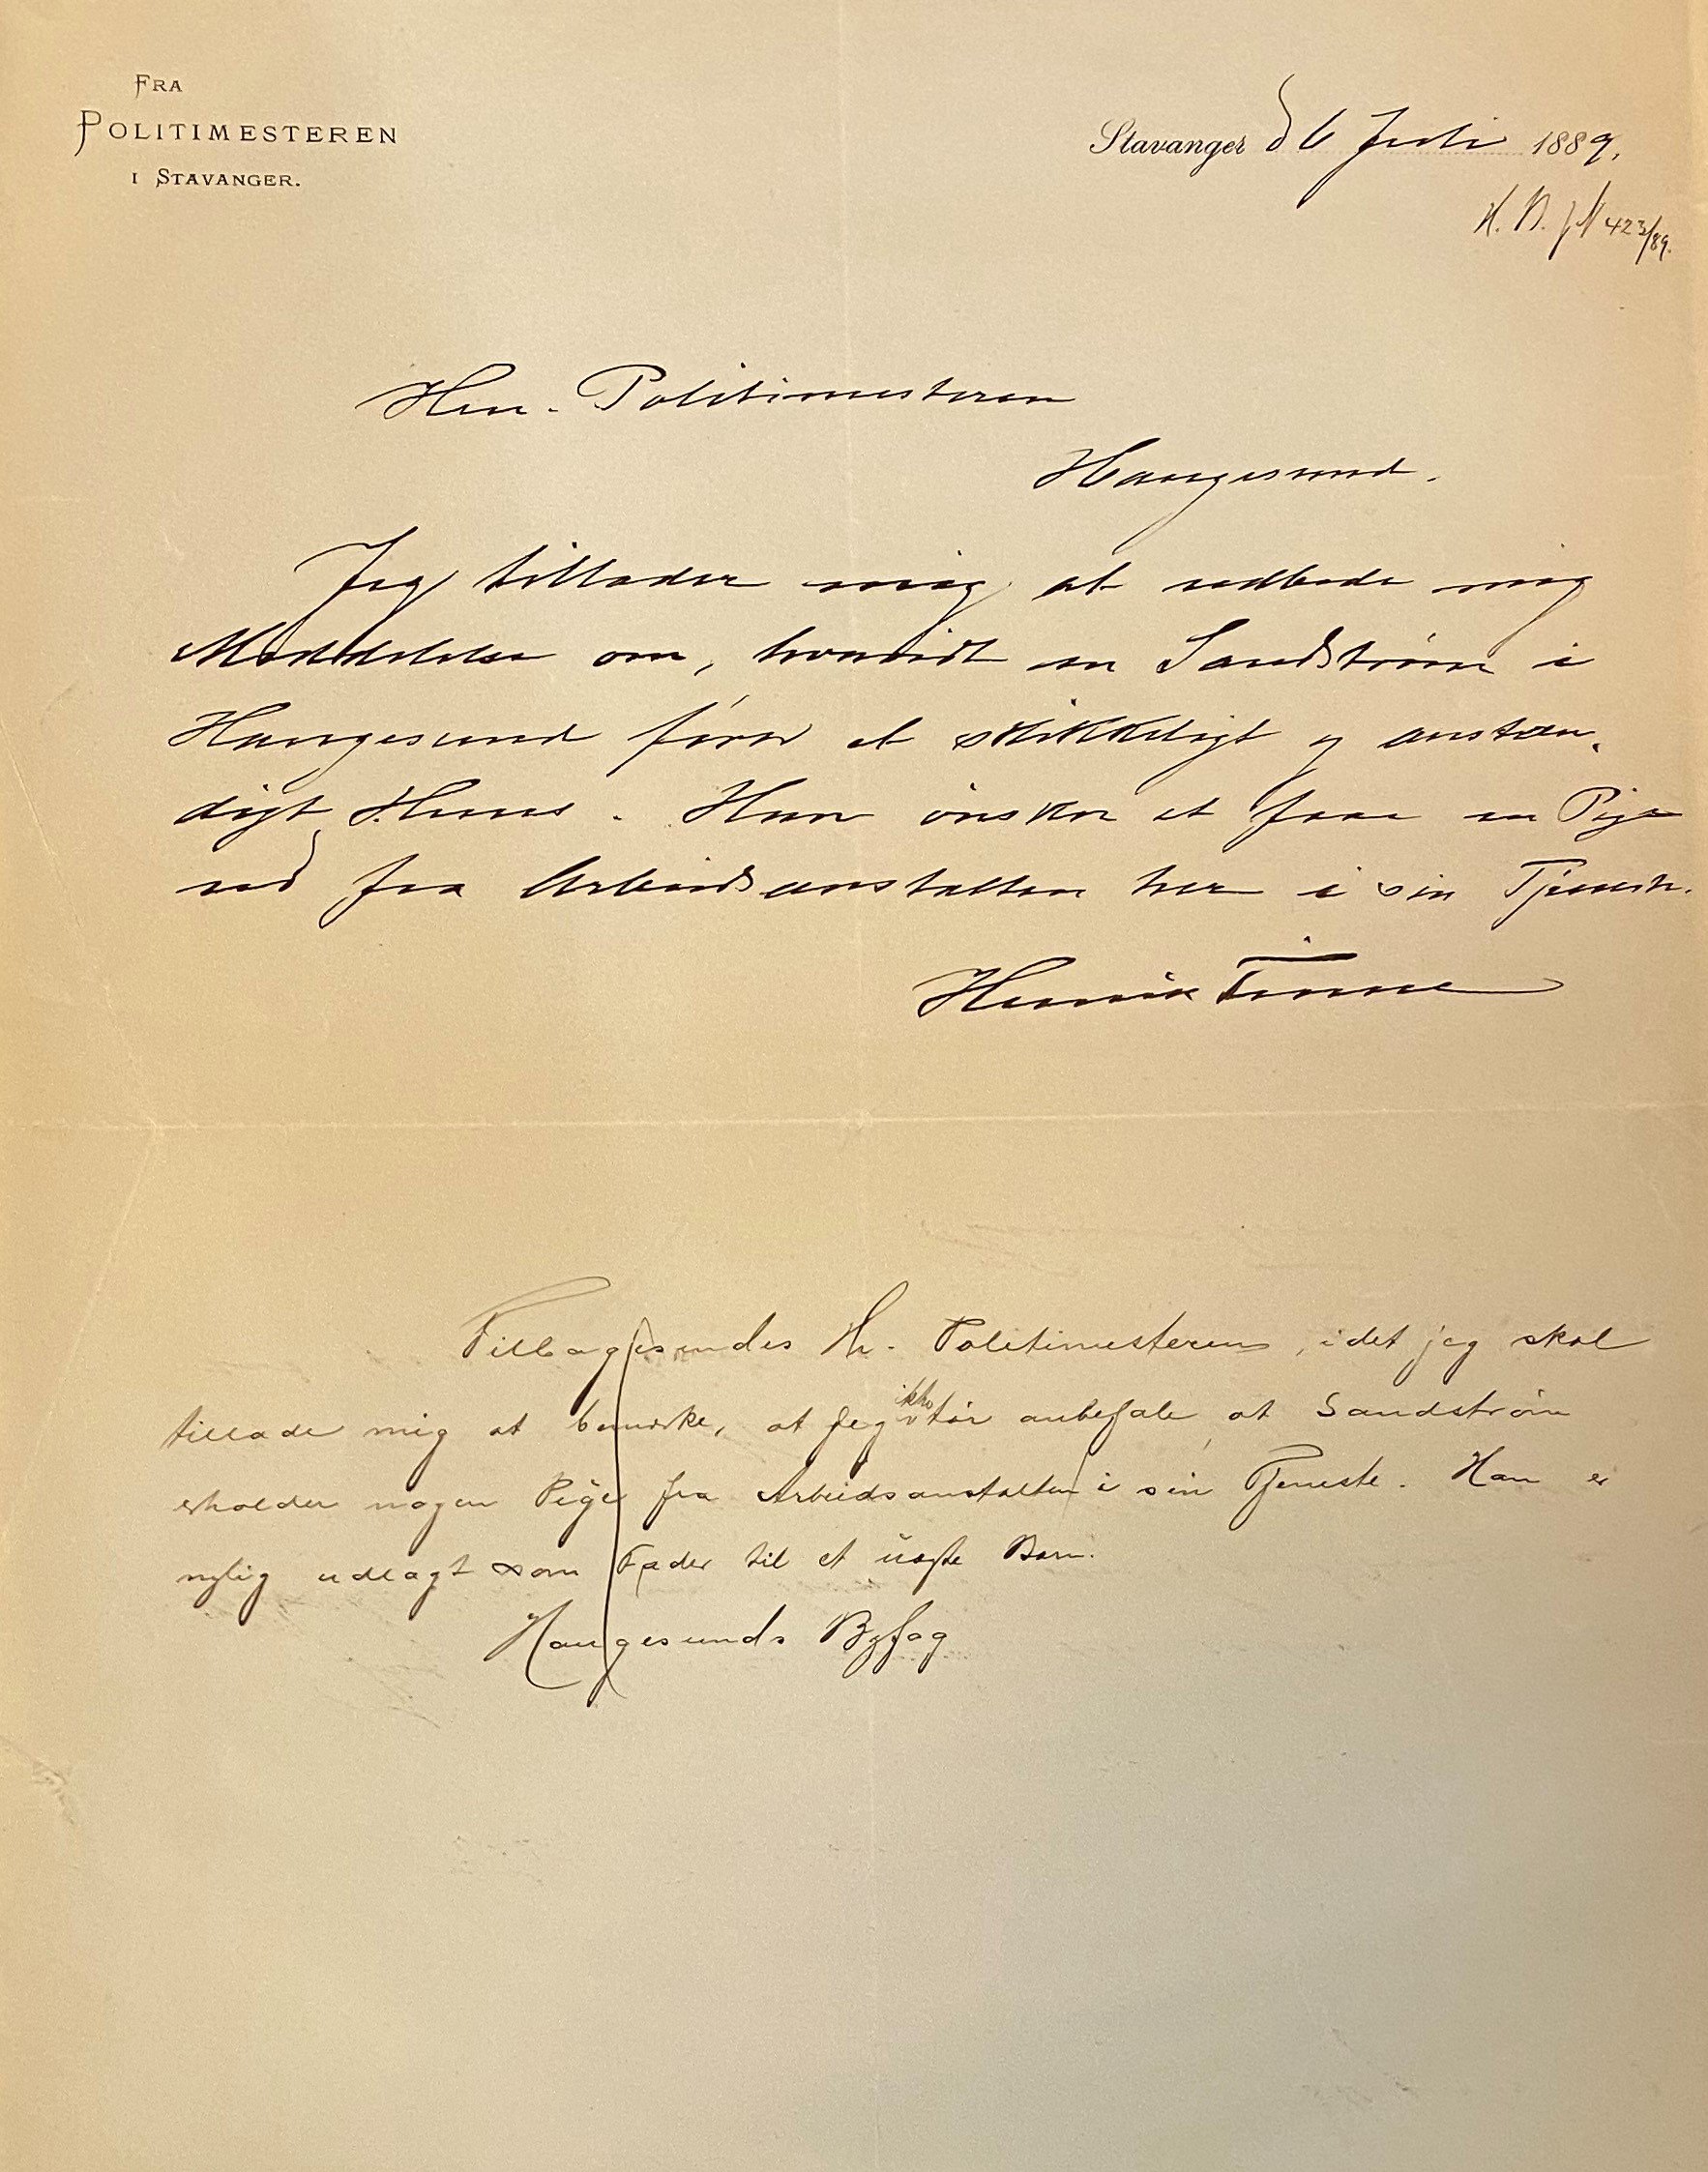 FRA
POLITIMESTEREN
I STAVANGER.
Stavanger d 6 Juli 1889.
H. B. J N 423/89.
Herr Politimesteren
Haugesund.
Jeg tillader mig at udbede mig
Meddelelse om, hvorvidt en Sandstrøm i
Haugesund fører et skikkeligt og anstæn-
digt Huus. Han ønsker at faae en Pige
ud fra Arbeidsanstalten her i sin Tjeneste.
Henrik Finne
Tilbagesendes Hr. Politimesteren, idet jeg skal
tillade mig at bemærke, at jeg ikke tør anbefale, at Sandstrøm
erholder nogen Pige fra Arbeidsanstalten i sin Tjeneste. Han er
nylig udlagt som Fader til et uægte Barn.
Haugesunds Byfog